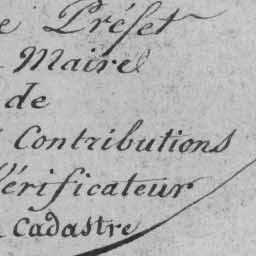 e Préfet
Maire
de
Contributions
Vérificateur
Cadastre